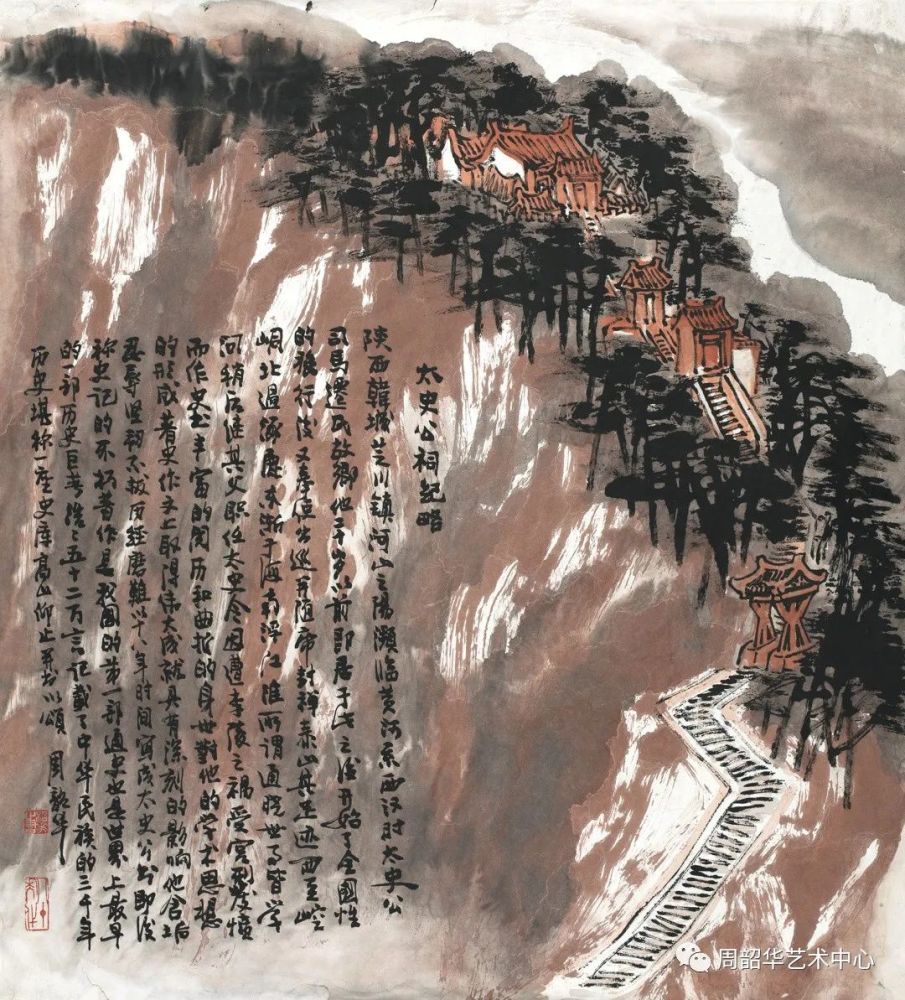 太史公祠纪略
陕西韩城芝川镇河山之阳濒临黄河系西汉时太史公
司马迁氏故乡他二十岁以前即居于此之后开始了全国性
的旅行后又奉使出巡并随帝封禅泰山其足迹西至崆
峒北过涿鹿东渐于海南浮江淮所谓通晓世事皆学
问稍后继其父职任太史令因遭李陵之祸受宫刑发愤
而作史他丰富的阅历和曲折的身世對他的学术思想
的形成着史作文上取得伟大成就具有深刻的影响他含垢
忍辱坚韧不拔历经磨難以十八年时间寫成太史公书即後
称史记的不朽着作是我國的第一部通史也是世界上最早
的一部历史巨著浩浩五十二万言记載了中华民族的三千年
历史堪称一座史库高山仰止并书以颂 周韶华
周韶华艺术中心